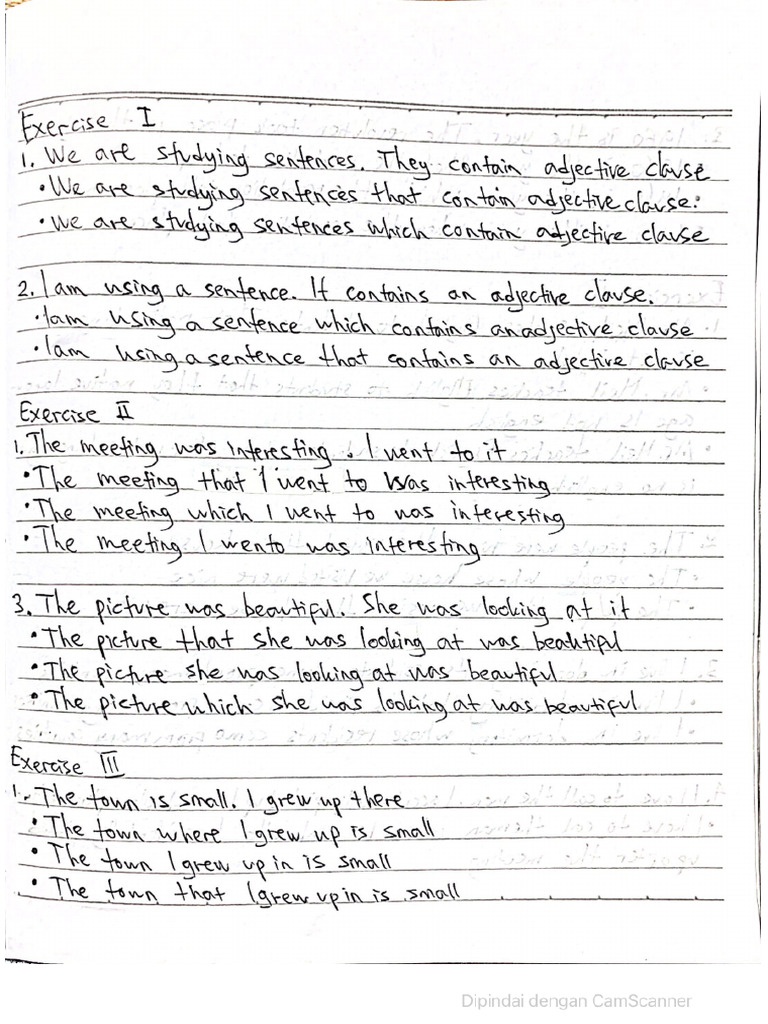 Exercise I
1. We are studying sentences. They contain adjective clause
• We are studying sentences that contain adjective clause.
• We are studying sentences which contain adjective clause
2. I am using a sentence. It contains an adjective clause.
• I am using a sentence which contains an adjective clause
• I am using a sentence that contains an adjective clause
Exercise II
1. The meeting was interesting. I went to it
• The meeting that I went to was interesting
• The meeting which I went to was interesting
• The meeting I wento was interesting
3. The picture was beautiful. She was looking at it
• The picture that she was looking at was beautiful
• The picture she was looking at was beautiful
• The picture which she was looking at was beautiful
Exercise III
1. The town is small. I grew up there
• The town where I grew up is small
• The town I grew up in is small
• The town that I grew up in is small
Dipindai dengan CamScanner